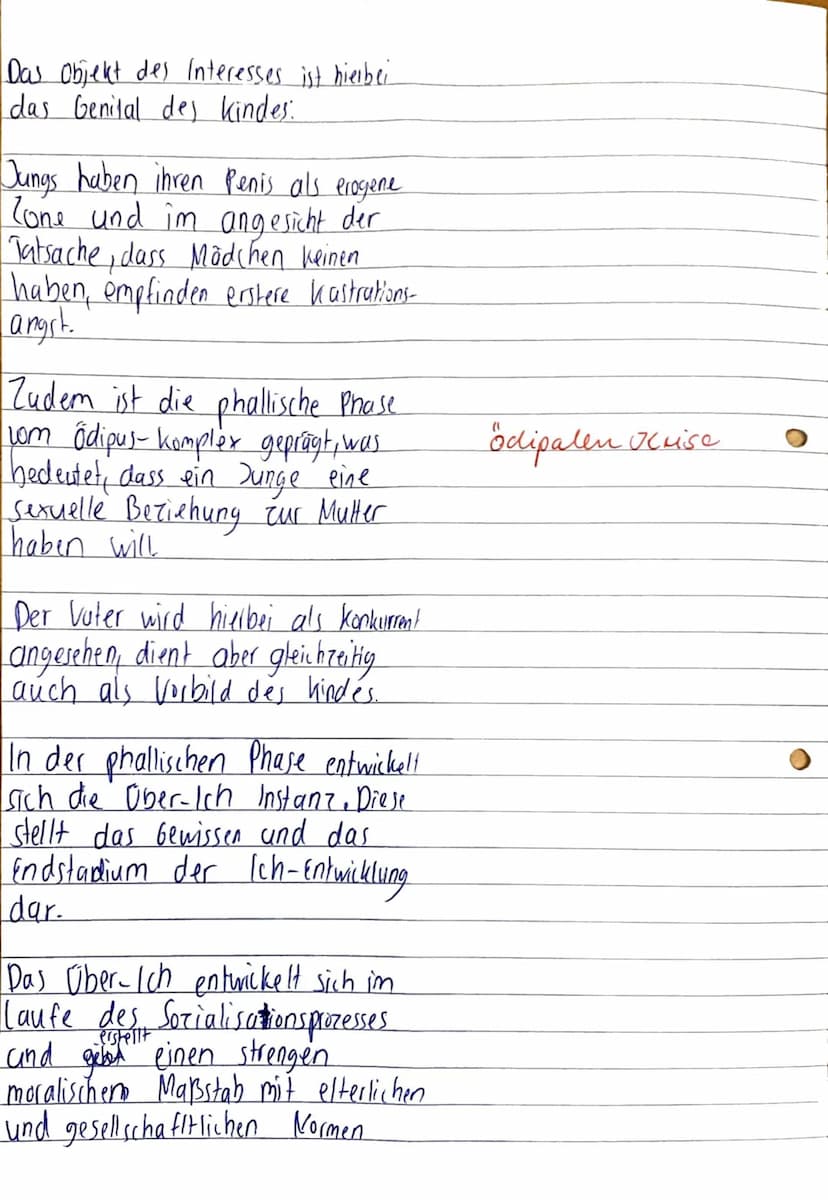 Das Objekt des Interesses ist hierbei
das Genital des Kindes.
Jungs haben ihren Penis als erogene
Zone und im angesicht der
Tatsache, dass Mädchen keinen
haben, empfinden erstere Kastrations-
angst.
Zudem ist die phallische Phase
vom Ödipus-Komplex geprägt, was
bedeutet, dass ein Junge eine
sexuelle Beziehung zur Mutter
haben will.
ödipalen Krise
Der Vater wird hierbei als Konkurrent
angesehen, dient aber gleichzeitig
auch als Vorbild des Kindes.
In der phallischen Phase entwickelt
sich die Über-Ich Instanz. Diese
stellt das Gewissen und das
Endstadium der Ich-Entwicklung
dar.
Das Über-Ich entwickelt sich im
Laufe des Sozialisationsprozesses
und erstellt einen strengen
moralischen Maßstab mit elterlichen
und gesellschaftlichen Normen